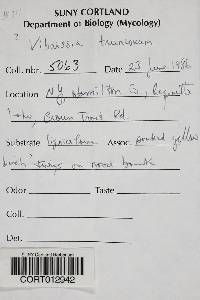 SUNY CORTLAND
Department of Biology (Mycology)
? Vibrissea truncorum
Coll. nbr. 5063 Date 23 June 1982
Location N.Y. Hamilton Co., Raquette
Lake, Brown Tract Rd.
Substrate lignicolous Assoc. yellow
birch twigs on road bank
Odor Taste
Coll.
Det.
SUNY Cortland Herbarium
CORT012942